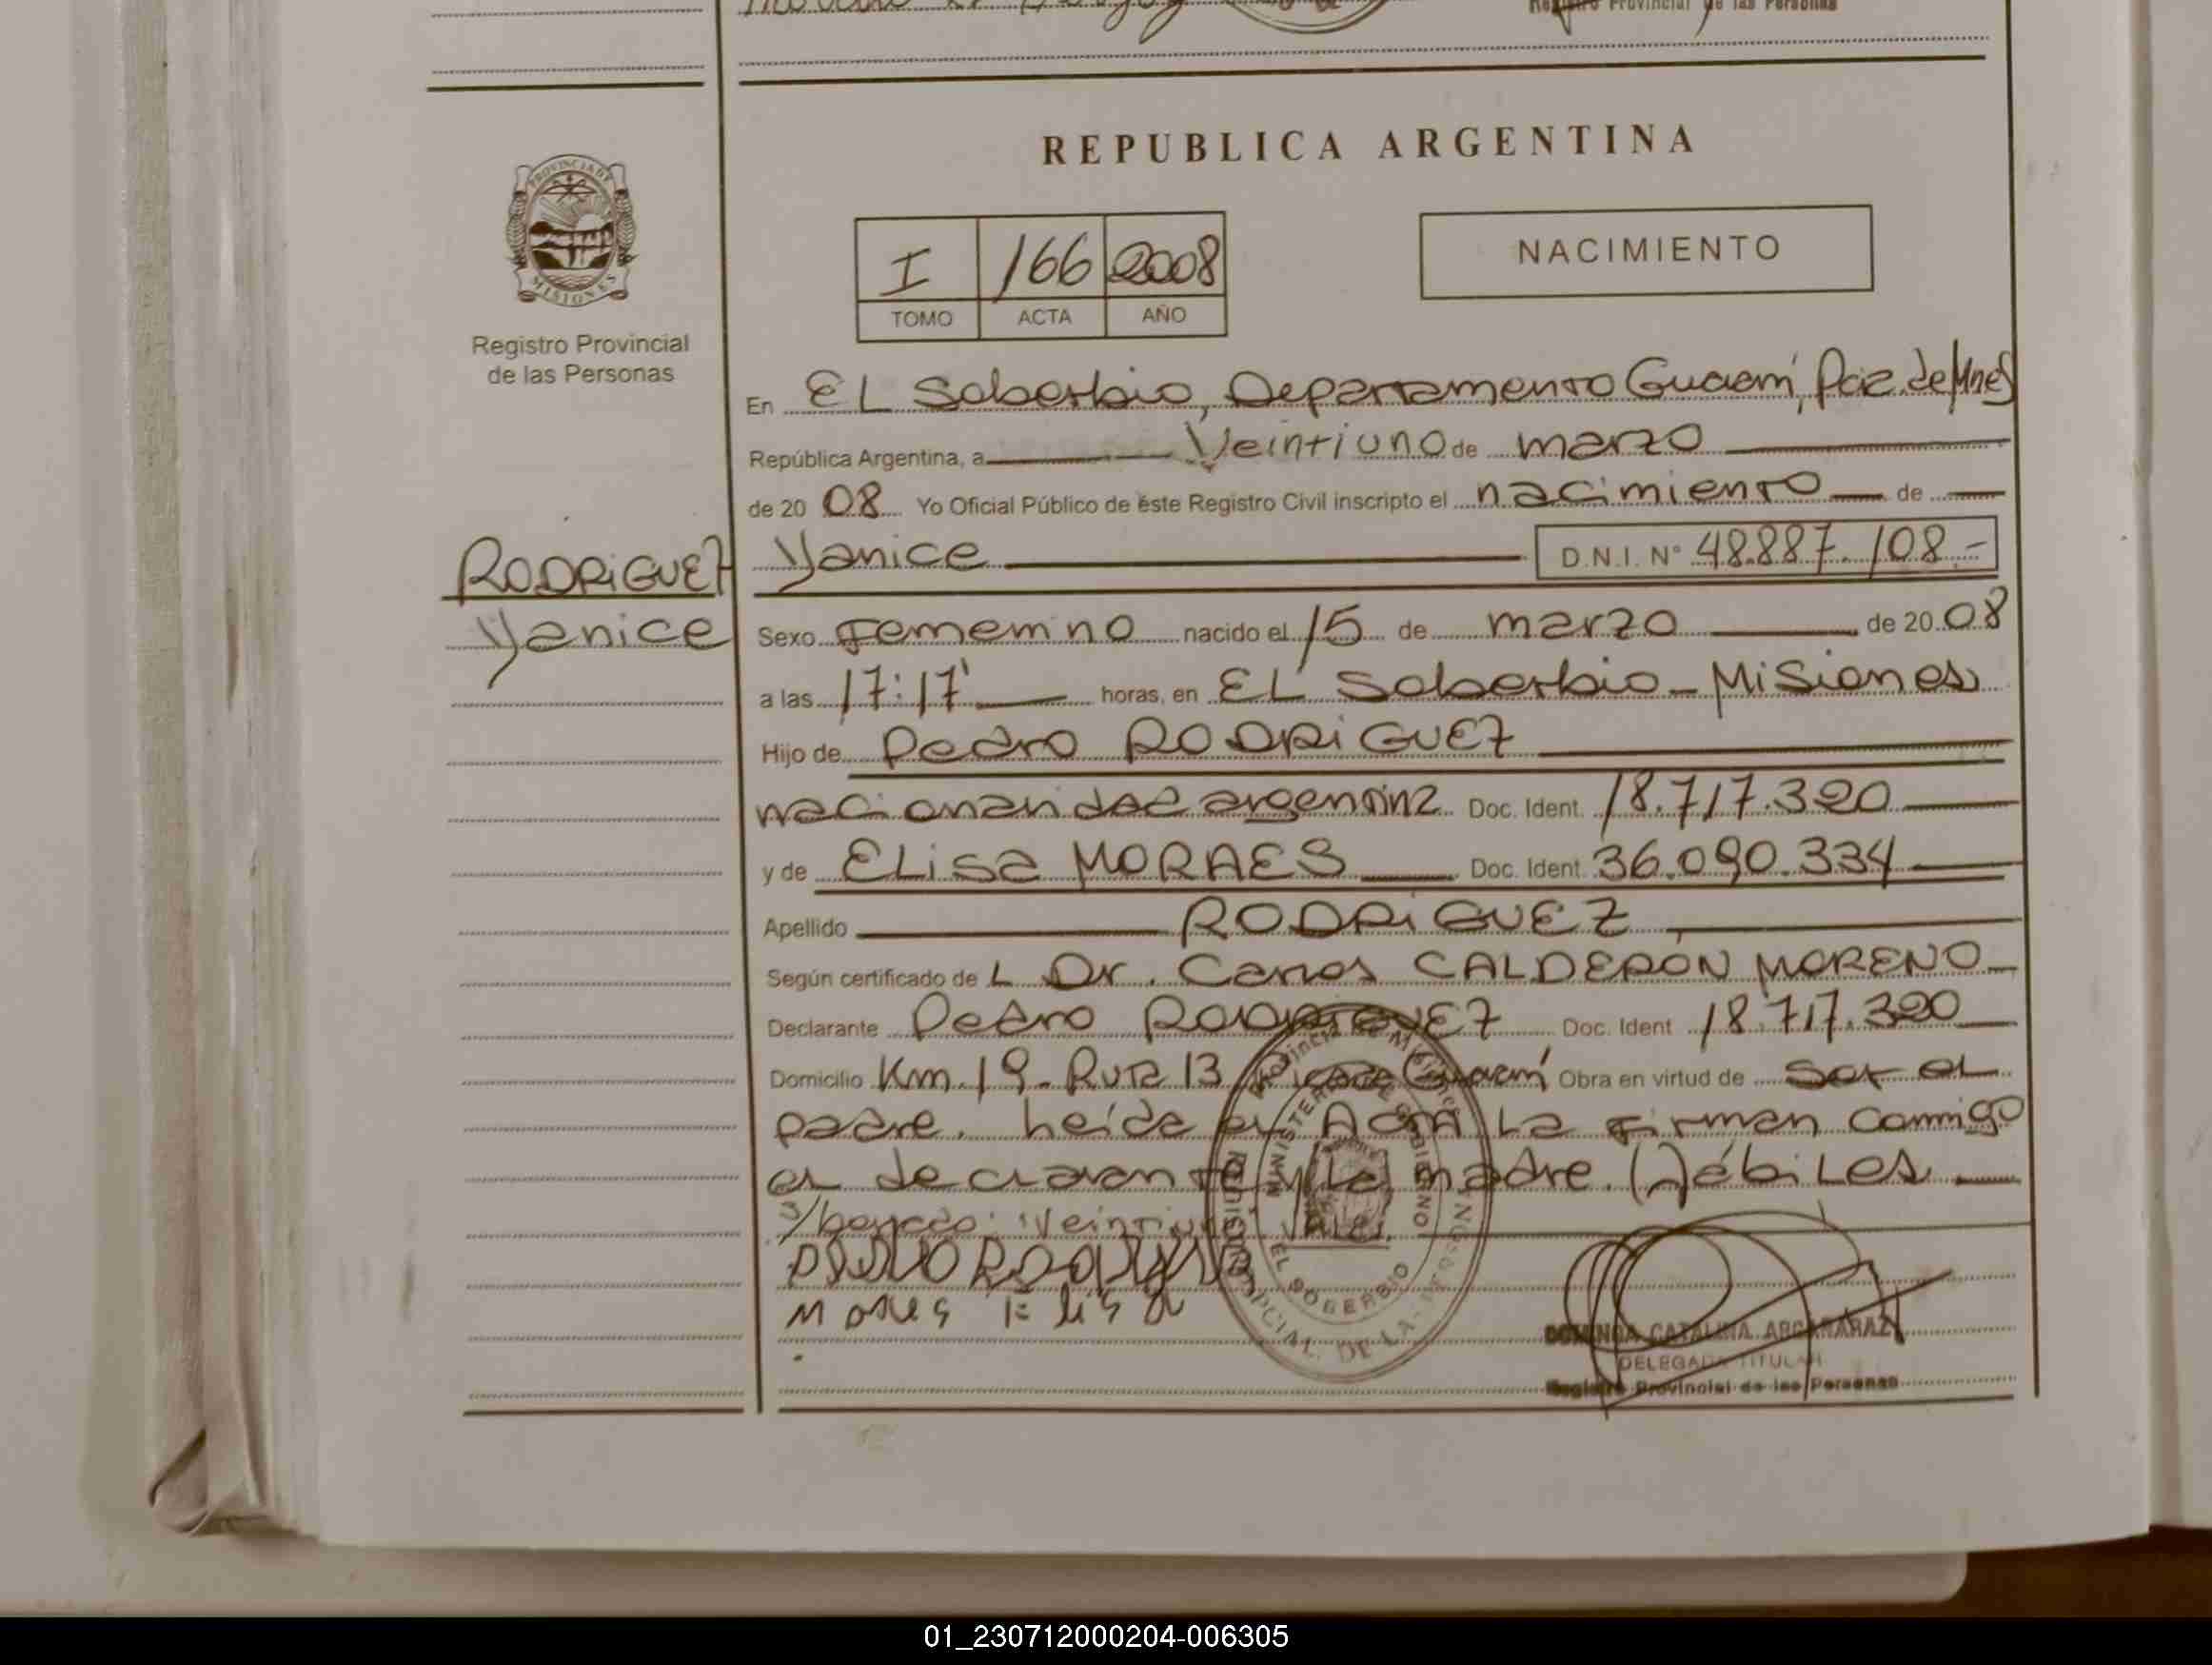 Registro Provincial de las Personas
REPUBLICA ARGENTINA
PROVINCIA DE MISIONES
Registro Provincial
de las Personas
I 166 2008
TOMO ACTA AÑO
NACIMIENTO
En EL Soberbio, Departamento Guaraní, Pcia. de Mnes
República Argentina, a Veintiuno de marzo
de 2008 Yo Oficial Público de éste Registro Civil inscripto el nacimiento de
RODRIGUEZ
Yanice
Yanice D.N.I. N° 48.887.108.-
Sexo Femenino nacido el 15 de marzo de 2008
a las 17:17' horas, en EL Soberbio - Misiones
Hijo de Pedro RODRIGUEZ
nacionalidad argentina Doc. Ident. 18.717.320
y de ELisa MORAES Doc. Ident. 36.090.334
Apellido RODRIGUEZ
Según certificado de L Dr. Carlos CALDERÓN MORENO
Declarante Pedro RODRIGUEZ Doc. Ident 18.717.320
Domicilio Km. 19 - Ruta 13 Guaraní Obra en virtud de Ser el
padre. Leída el Acta La Firman conmigo
el declarante y La madre. (2) ébiLes
s/borrado: Veintiuno: VALE.
Moraes Elisa
Provincia de Misiones
MINISTERIO DE GOBIERNO
REGISTRO PCIAL. DE LAS PERSONAS
EL SOBERBIO
CATALINA ARGAÑARAZ
DELEGADA TITULAR
Registro Provincial de las Personas
01_230712000204-006305